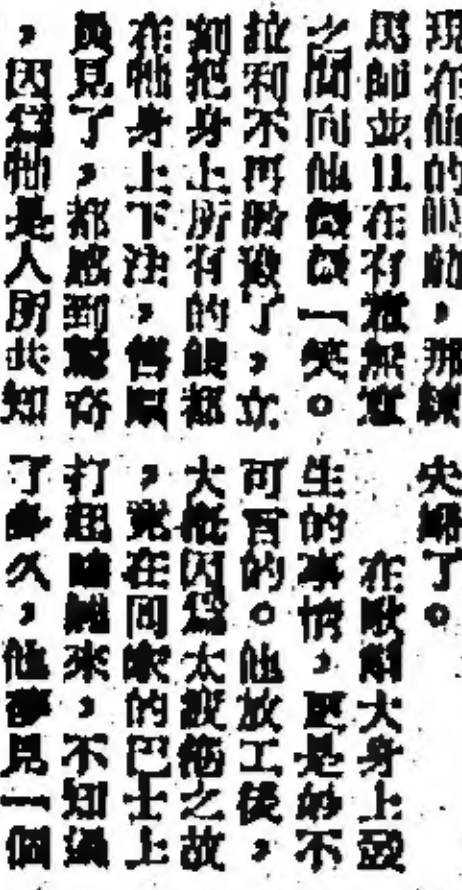 現在他的眼前，那練
馬師並且在有意無意
之間向他微微一笑。
拉利不再了，立
刻把身上所有的錢都
在牠身上下注，售票
員見了，都感到驚奇
，因為牠是人所共知
歸了。
在大身上發
生的事情，更是妙不
可言的。他放工後，
大概因為太疲倦之故
，竟在回家的巴士上
打起瞌睡來，不知過
了多久，他夢見一個